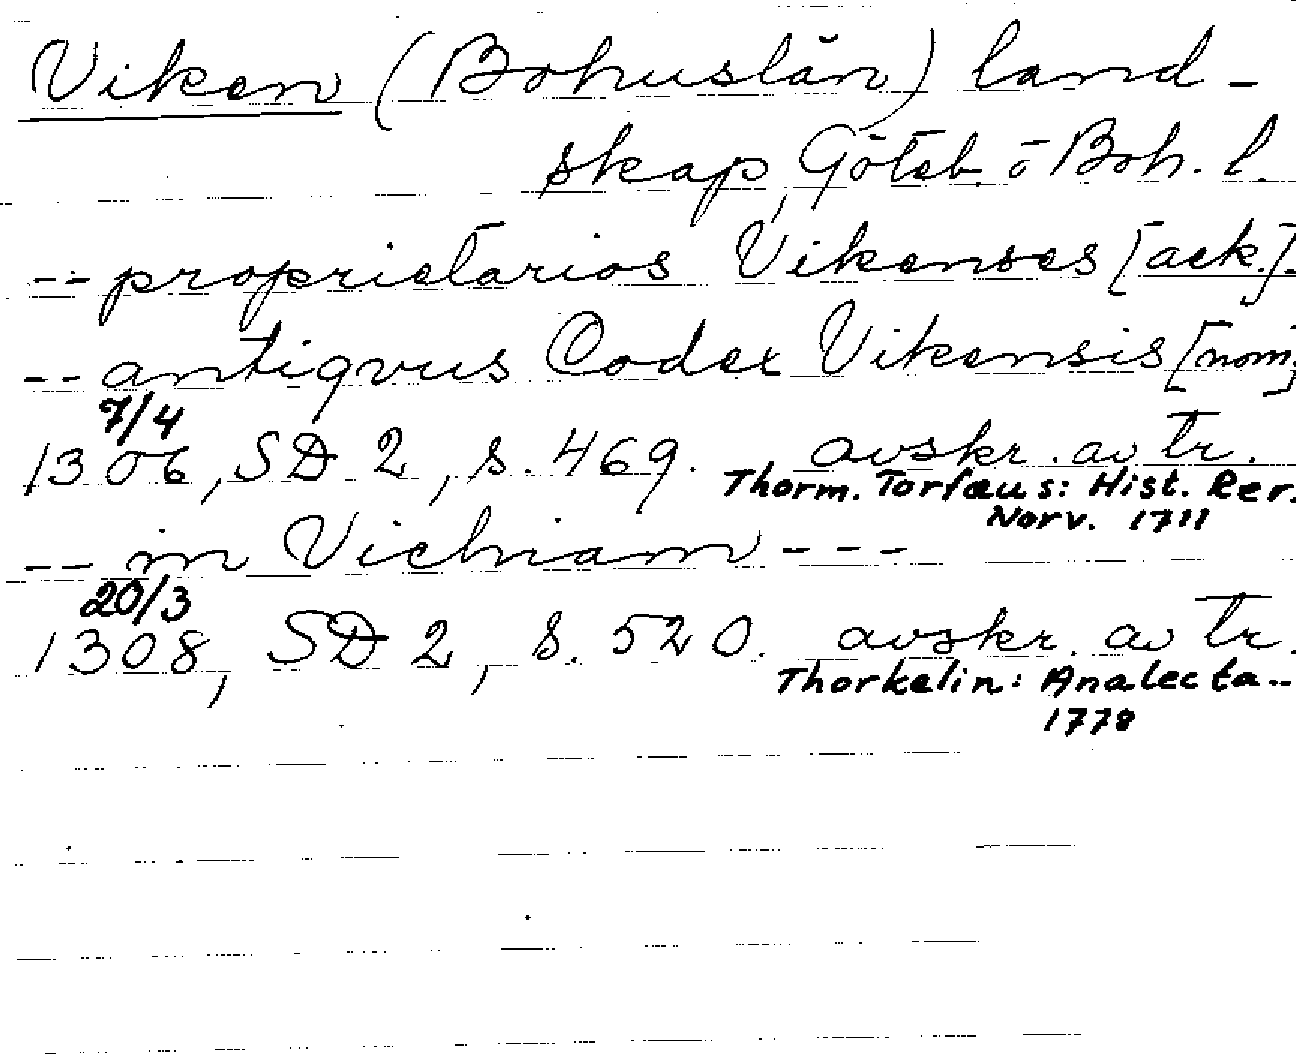 Viken (Bohuslän) land-
skap, Göteb. o Boh. l.
-- proprietarios Vikenses [ack.]
-- antiqvus Codex Vikensis [nom.]
7/4
1306, SD 2, s. 469. avskr. av tr.
Thorm. Torfæus: Hist. Rer.
Norv. 1711
-- in Vichiam ---
20/3
1308, SD 2, s. 520. avskr. av tr.
Thorkelin: Analecta--
1778